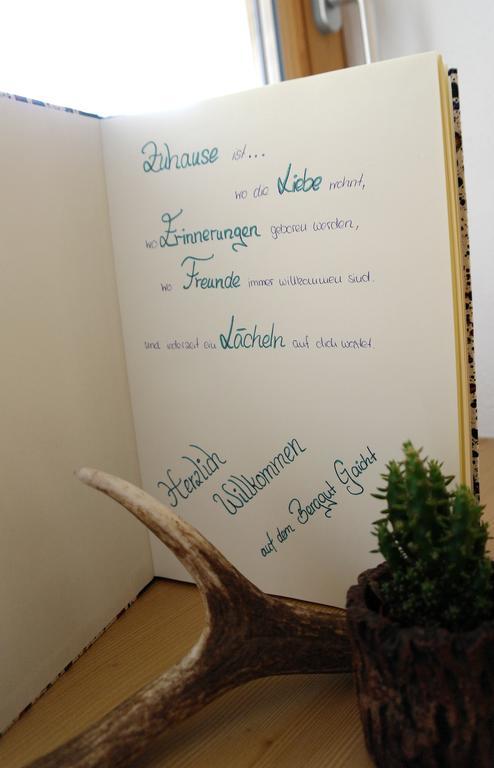 Zuhause ist...
wo die Liebe wohnt,
wo Erinnerungen geboren werden,
wo Freunde immer willkommen sind.
und jederzeit ein Lächeln auf dich wartet.
Herzlich
Willkommen
auf dem Berggut Gaicht